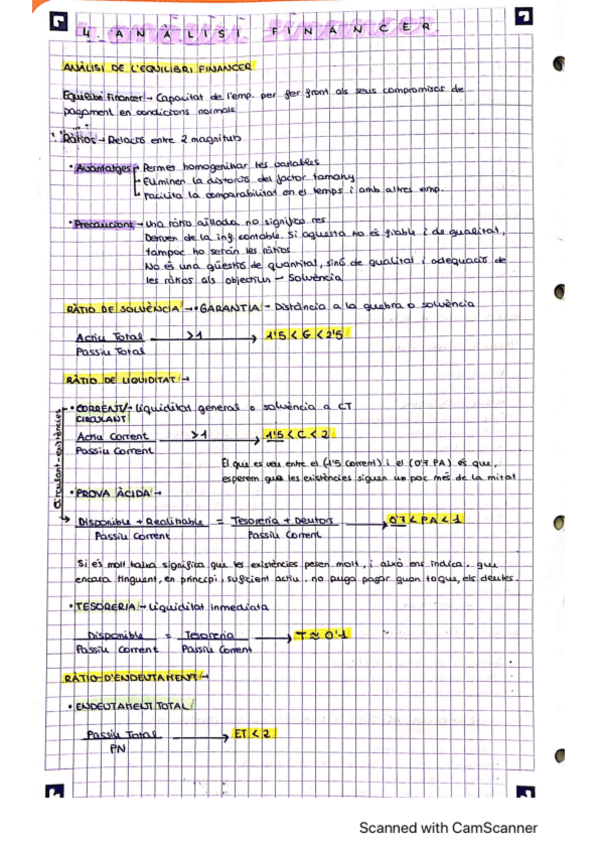 4. ANÀLISI FINANCER
ANÀLISI DE L'EQUILIBRI FINANCER
Equilibri Financer → Capacitat de l'emp. per fer front als seus compromisos de
pagament en condicions normals
Ràtios → Relació entre 2 magnituds
• Avantatges → Permet homogeneitzar les variables
Eliminen la distorsió del factor tamany
Facilita la comparabilitat en el temps i amb altres emp.
• Precaucions → Una ràtio aïllada no significa res
Deriven de la inf. contable. Si aquesta no és fiable i de qualitat,
tampoc ho seràn les ràtios
No és una qüestió de quantitat, sinó de qualitat i adequació de
les ràtios als objectius → Solvència
RÀTIO DE SOLVÈNCIA → • GARANTIA → Distància a la quebra o solvència
Actiu Total / Passiu Total >1 → 1'5 < G < 2'5
RÀTIO DE LIQUIDITAT →
• CORRENT/ → Liquiditat general o solvència a CT
CIRCULANT
Actiu Corrent / Passiu Corrent >1 → 1'5 < C < 2
El que es veu entre el (1'5 corrent) i el (0'7 PA) és que,
esperem que les existències siguen un poc més de la mitat
Circulant-existències
• PROVA ÀCIDA →
Disponible + Realitzable / Passiu Corrent = Tesoreria + Deutors / Passiu Corrent → 0'7 < PA < 1
Si és molt baixa significa que les existències pesen molt, i això ens indica, que
encara tinguent, en principi, suficient actiu, no puga pagar quan toque, els deutes.
• TESORERIA → Liquiditat inmediata
Disponible / Passiu Corrent = Tesoreria / Passiu Corrent → T ≈ 0'1
RÀTIO D'ENDEUTAMENT →
• ENDEUTAMENT TOTAL
Passiu Total / PN → ET < 2
Scanned with CamScanner